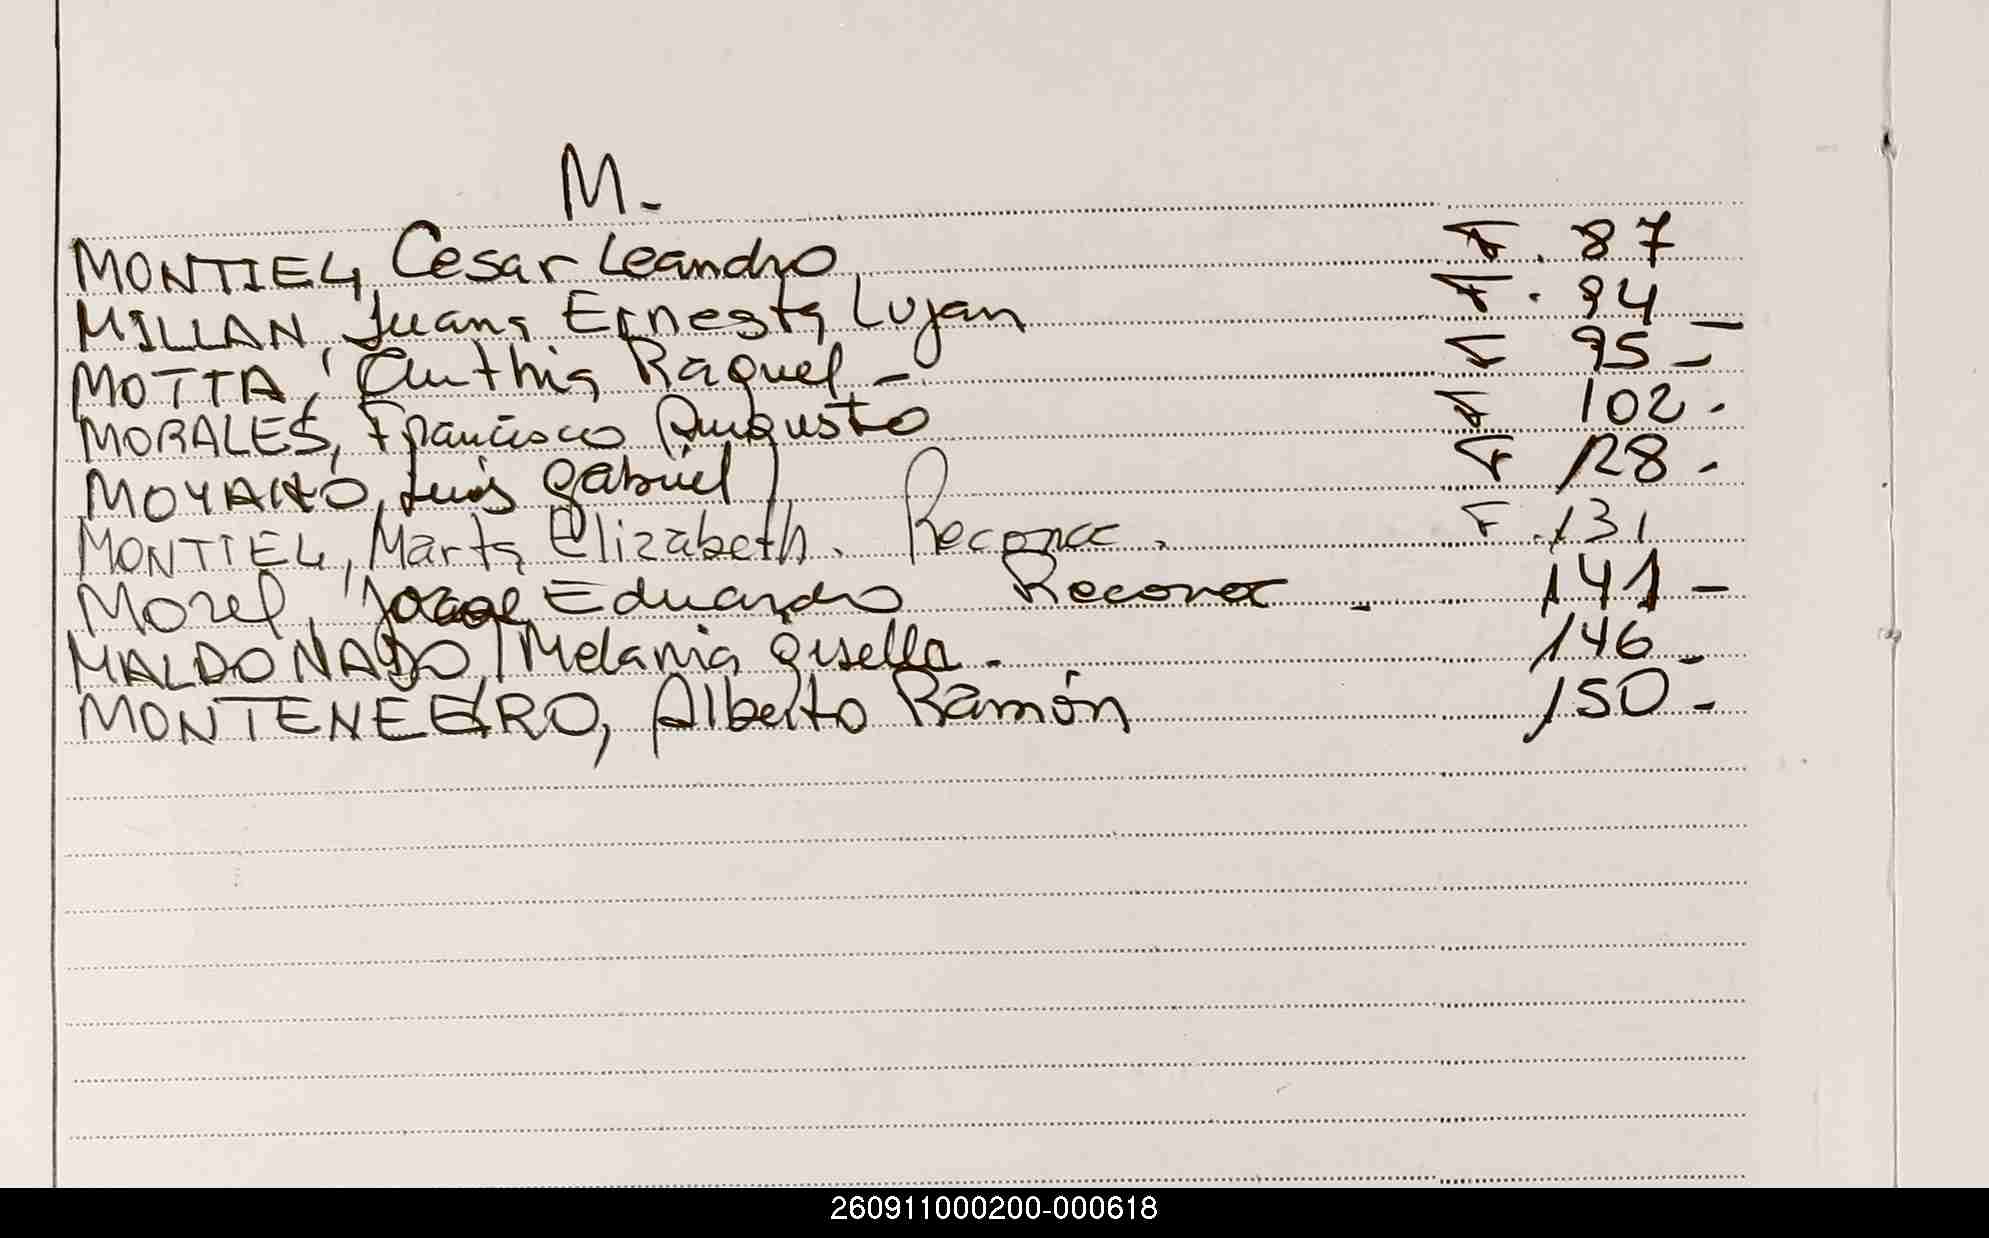 M.-
MONTIEL, Cesar Leandro F. 87
MILLAN, Juana Ernesta Lujan F. 94 -
MOTTA, Cinthia Raquel - F 95 -
MORALES, Francisco Augusto F 102.
MOYANO, Luis Gabriel F 128.
MONTIEL, Marta Elizabeth. Reconoc. F. 131
Morel, Jorge Eduardo Reconoc - 141 -
MALDONADO, Melania Gisella. 146 -
MONTENEGRO, Alberto Ramón 150 -
260911000200-000618